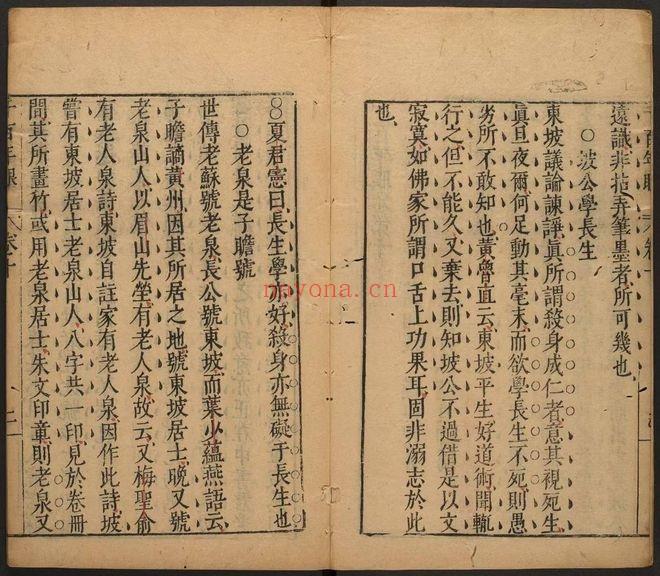 遠識非指弄筆墨者所可幾也
○坡公學長生
東坡議論諫諍真所謂殺身成仁者意其視死生
真旦夜爾何足動其毫末而欲學長生不死則愚
劣所不敢知也黃魯直云東坡平生好道術聞輒
行之但不能久又棄去則知坡公不過借是以文
寂寞如佛家所謂口舌上功果耳固非溺志於此
也
○○夏君憲曰長生學亦好殺身亦無礙于長生也
○老泉是子瞻號
世傳老蘇號老泉長公號東坡而葉少蘊燕語云
子瞻謫黃州因其所居之地號東坡居士晚又號
老泉山人以眉山先塋有老人泉故云又梅聖俞
有老人泉詩東坡自註家有老人泉因作此詩坡
嘗有東坡居士老泉山人八字共一印見於卷冊
間其所畫竹或用老泉居士朱文印章則老泉又
nayona.cn